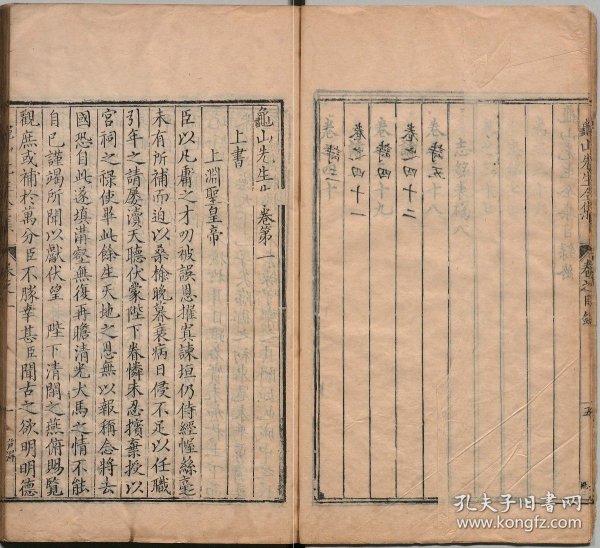 龜山先生全集
卷之目錄
五
卷之四十一
詩四十九
卷之四十二
詩五十八
龜山先生
卷第一
上書
上淵聖皇帝
臣以凡庸之才叨被誤恩擢寘諫垣仍侍經幄絲毫
未有所補而迫以桑榆晚景衰病日侵不足以任職
引年之請屢瀆天聽伏蒙陛下眷憐未忍擯棄授以
宮祠之祿使畢此餘生天地之恩無以報稱念將去
國恐自此遂填溝壑無復再瞻清光犬馬之情不能
自已謹竭所聞以獻伏望陛下清閒之燕俯賜覧
觀庶或補於萬分臣不勝幸甚臣聞古之欲明明德
一
孔夫子旧书网
www.kongfz.com